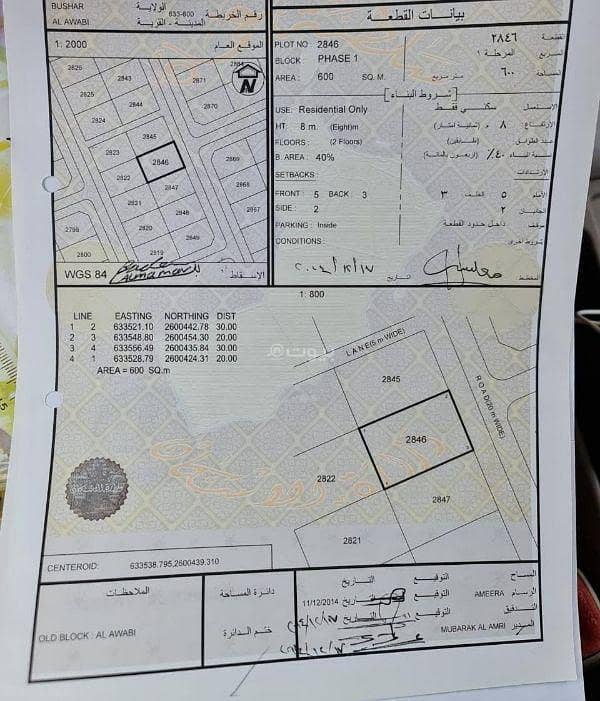 BUSHAR الولاية
AL AWABI المدينة - القرية
633-600 رقم الخريطة
بيانات القطعة
1: 2000 الموقع العام
2826
2825
2824
2843
2844
2845
2823
2822
2821
2820
2819
2798
2800
2871
2870
2846
2847
2848
2849
2869
2868
2867
N
WGS 84 الإسقاط
PLOT NO 2846 ٢٨٤٦ القطعة
BLOCK PHASE 1 المرحلة ١ المربع
AREA : 600 SQ. M. متر مربع ٦٠٠ المساحة
[شروط البناء]
USE: Residential Only سكني فقط الاستعمال
HT 8 m (Eight)m ٨ م (ثمانية امتار) الارتفاع
FLOORS : (2 Floors) (طابقين) عدد الطوابق
B. AREA : 40% ٤٠٪ (اربعون بالمائة) نسبة البناء
SETBACKS : الارتدادات
FRONT : 5 BACK : 3 الأمام ٥ الخلف ٣
SIDE : 2 الجانبان ٢
PARKING : Inside داخل حدود القطعة موقف
CONDITIONS : شروط اخرى
المخطط التاريخ
1: 800
LINE EASTING NORTHING DIST
1 2 633521.10 2600442.78 30.00
2 3 633548.80 2600454.30 20.00
3 4 633556.49 2600435.84 30.00
4 1 633528.79 2600424.31 20.00
AREA = 600 SQ.m
LANE(5 m WIDE)
ROAD(20 m WIDE)
2845
2846
2822
2847
2821
CENTEROID: 633538.795,2600439.310
الملاحظات
OLD BLOCK : AL AWABI
دائرة المساحة
ختم الدائرة
المساح التوقيع التاريخ
الرسام AMEERA التوقيع التاريخ 11/12/2014
التدقيق التوقيع التاريخ
المدير MUBARAK AL AMRI